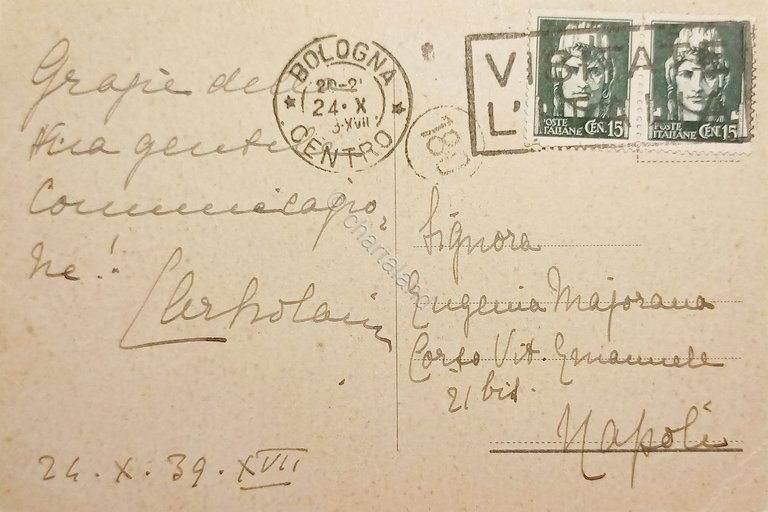 Grazie della
Sua gentile
Comunicazio-
ne!
24 . X . 39 . XVII
BOLOGNA
24 · X
XVII
CENTRO
180
VISITATE
L'ITALIA
POSTE ITALIANE CEN. 15
POSTE ITALIANE CEN. 15
Signora
Eugenia Majorana
Corso Vit. Emanuele
21 bis.
Napoli